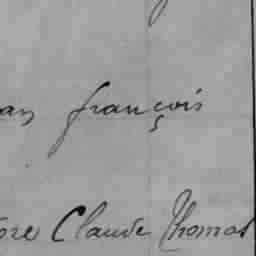 françois
Claude Thomas